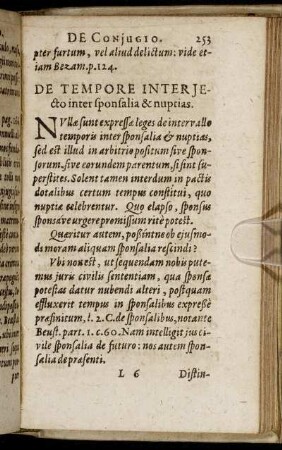 DE CONJUGIO. 253
pter furtum, vel aliud delictum: vide et-
iam Bezam. p. 124.
DE TEMPORE INTERJE-
cto inter sponsalia & nuptias.
NUllæ sunt expressæ leges de intervallo
temporis inter sponsalia & nuptias,
sed est illud in arbitrio positum sive spon-
sorum, sive eorundem parentum, si sint su-
perstites. Solent tamen interdum in pactis
dotalibus certum tempus constitui, quo
nuptiæ celebrentur. Quo elapso, sponsus
sponsáve urgere promissum ritè potest.
Quæritur autem, possintne ob ejusmo-
di moram aliquam sponsalia rescindi?
Ubi non est, ut sequendam nobis pute-
mus juris civilis sententiam, qua sponsæ
potestas datur nubendi alteri, postquam
effluxerit tempus in sponsalibus expressè
præfinitum, l. 2. C. de sponsalibus, notante
Beust. part. 1. c. 60. Nam intelligit jus ci-
vile sponsalia de futuro: nos autem spon-
salia de præsenti.
L 6 Distin-